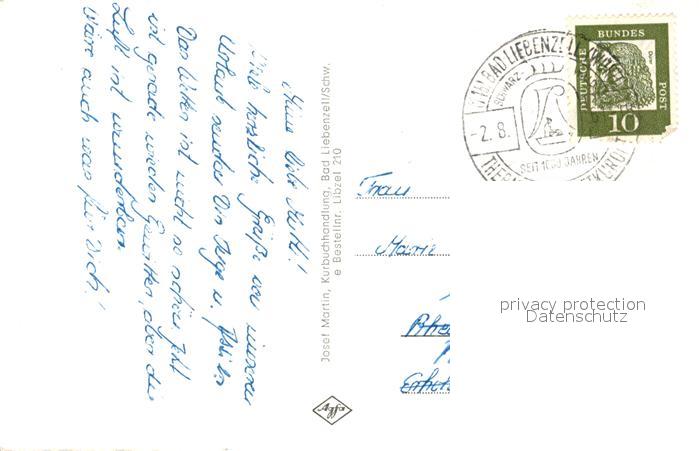 Meine liebe Mutti!
Viele herzliche Grüße von unserem
Urlaub senden Dir Inge u.
Das Wetter ist nicht so schön. Jetzt
ist gerade wieder Gewitter, aber die
Luft ist wunderbar.
Wäre auch was für Dich!
Josef Martin, Kurbuchhandlung, Bad Liebenzell/Schw.
e Bestellnr. Libzell 210
Agfa
BAD LIEBENZELL
SCHWARZ-
-2. 8.
SEIT 1000 JAHREN
DEUTSCHE BUNDES POST
Dürer
10
Frau
Marie
privacy protection
Datenschutz